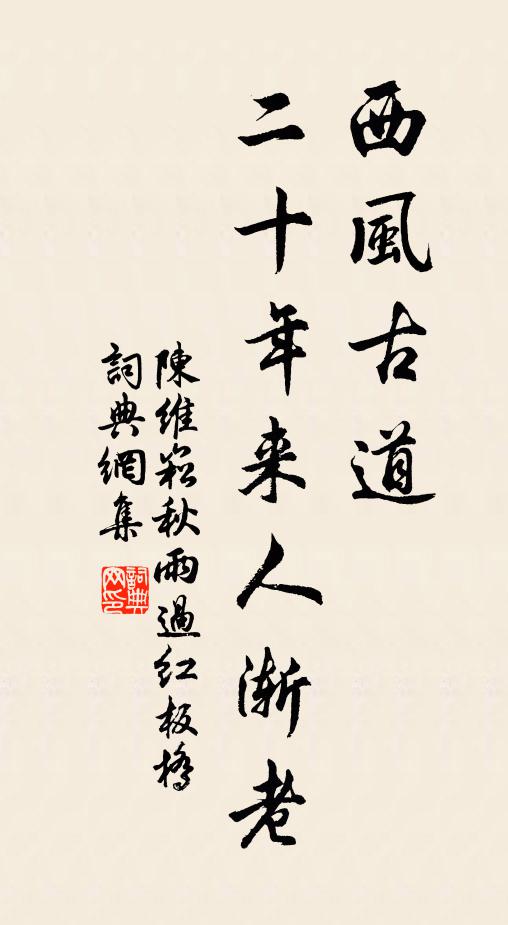 西風古道
二十年来人漸老
陳維崧秋雨過紅板橋
詞典網集
詞典
网印